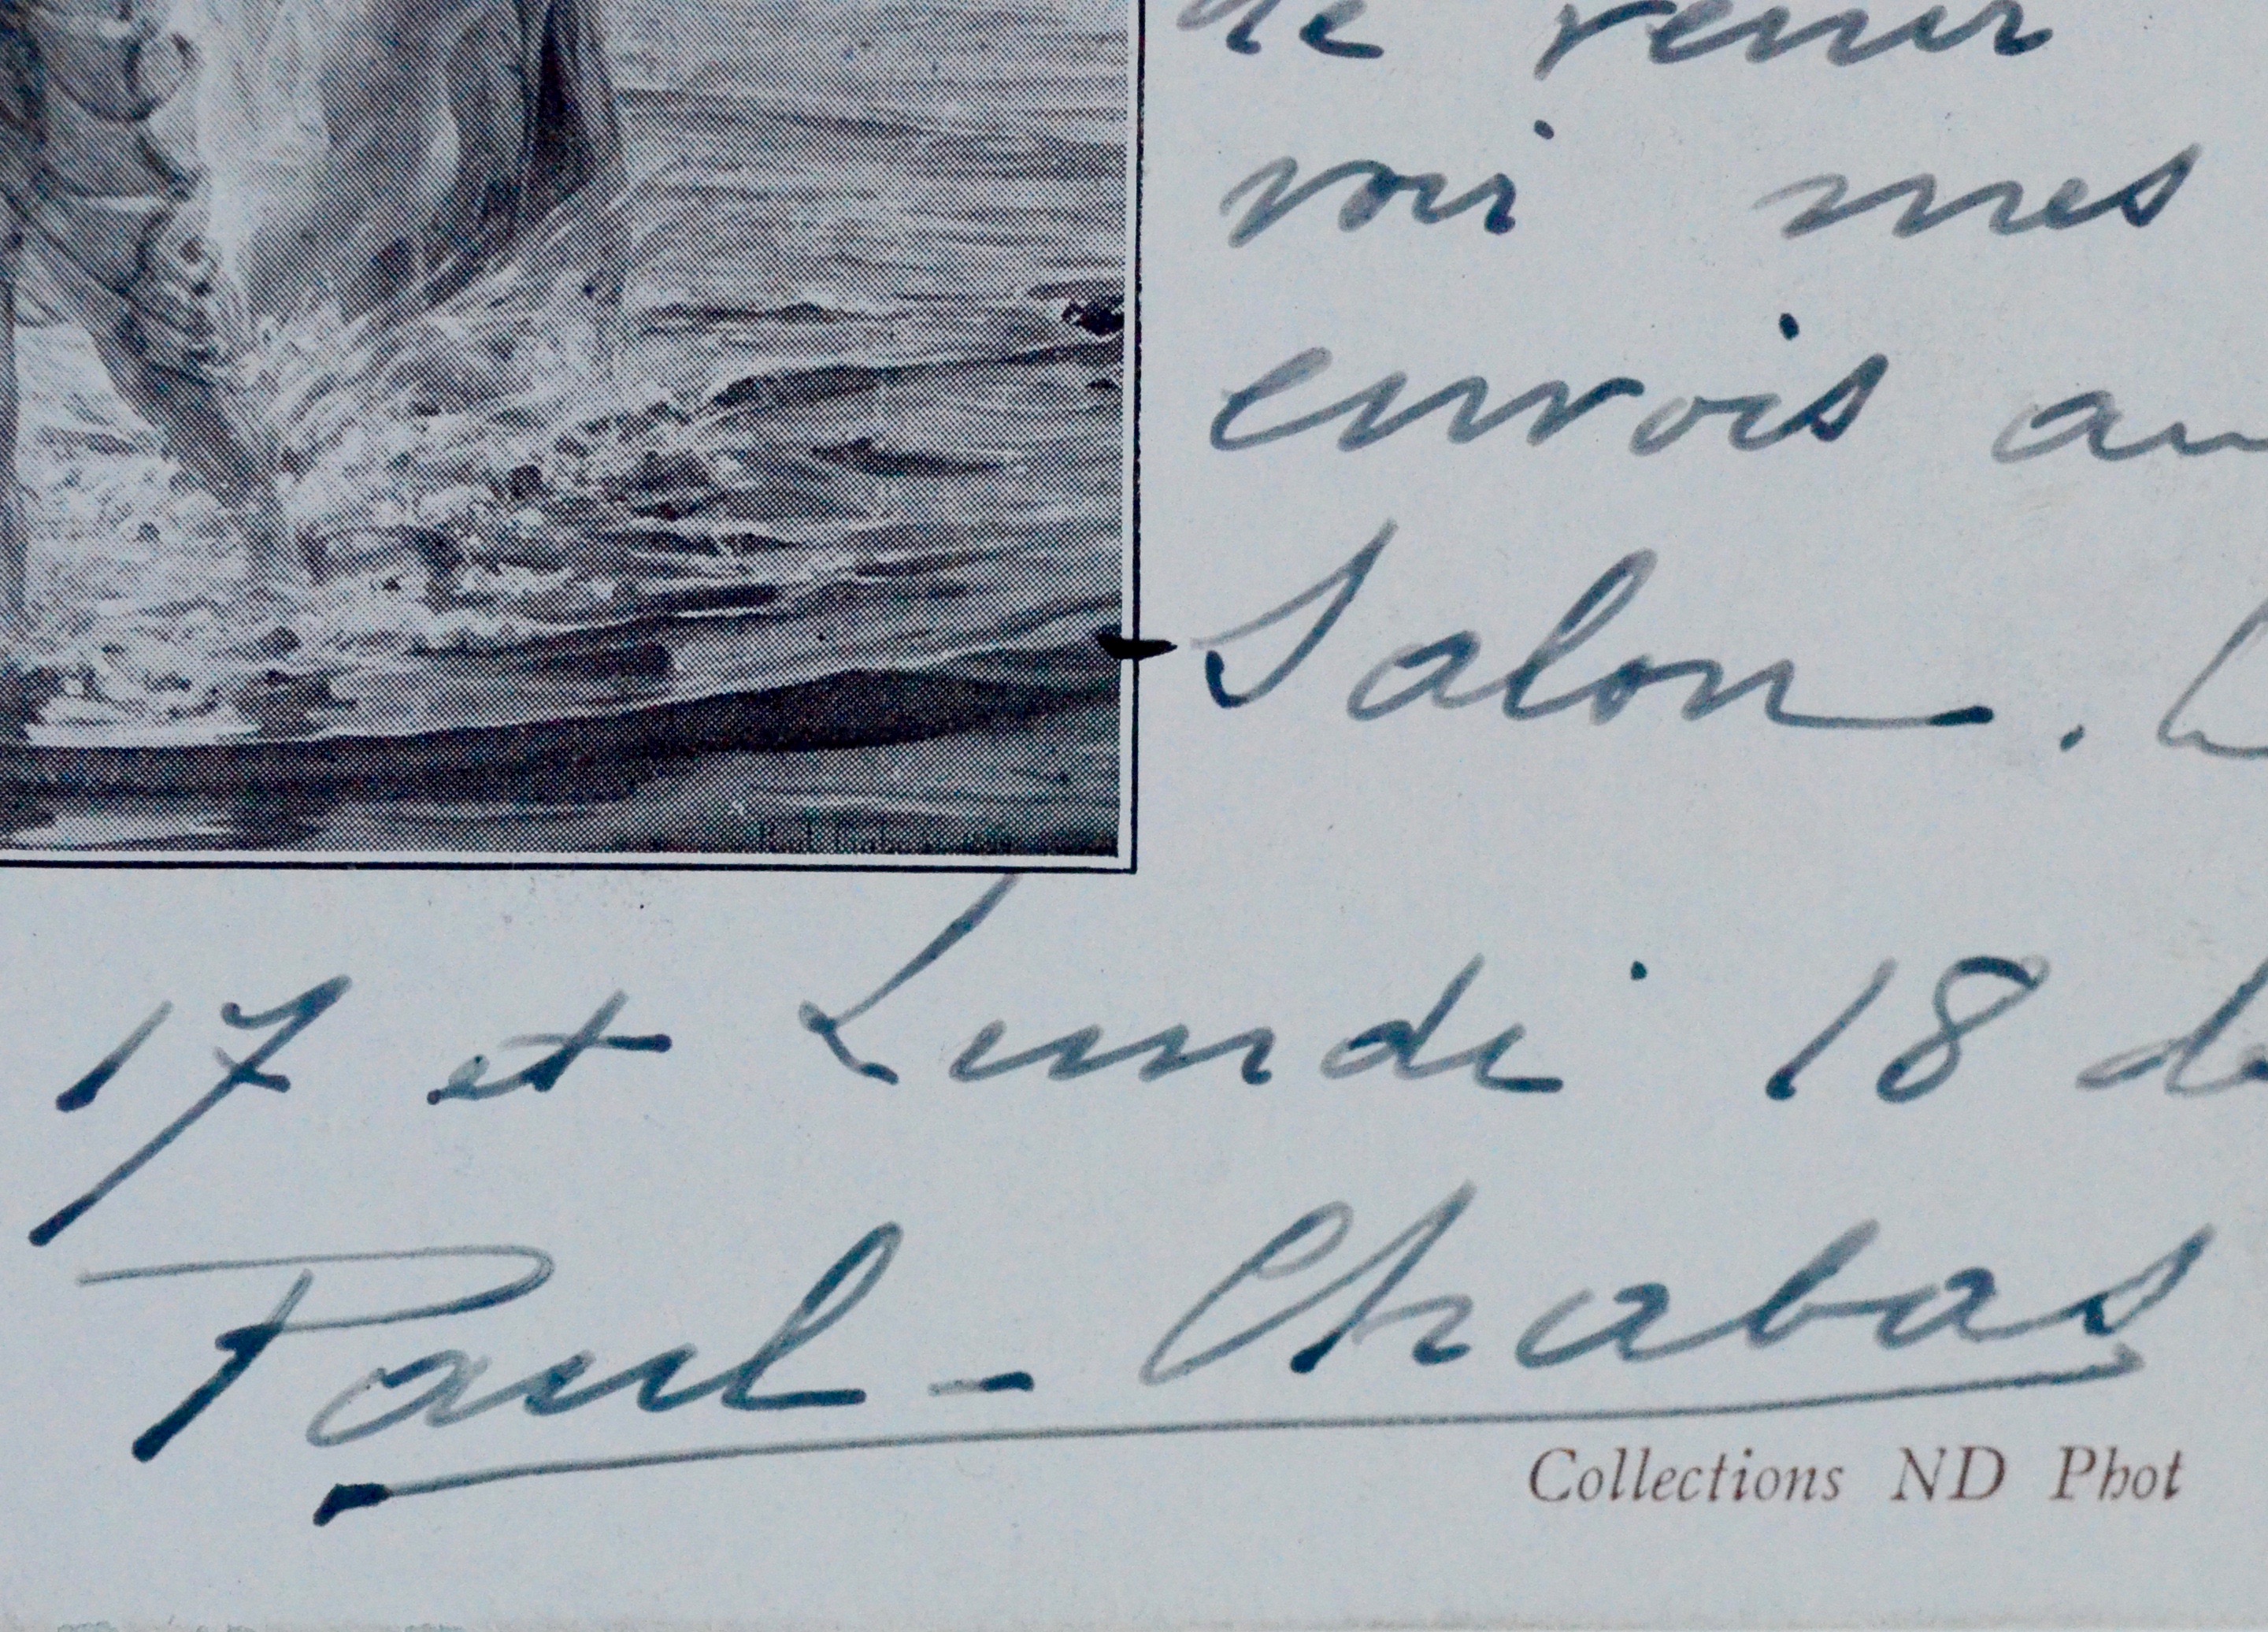 de venir
voir mes
envois au
Salon.
17 et Lundi 18 de
Paul - Chabas
Collections ND Phot